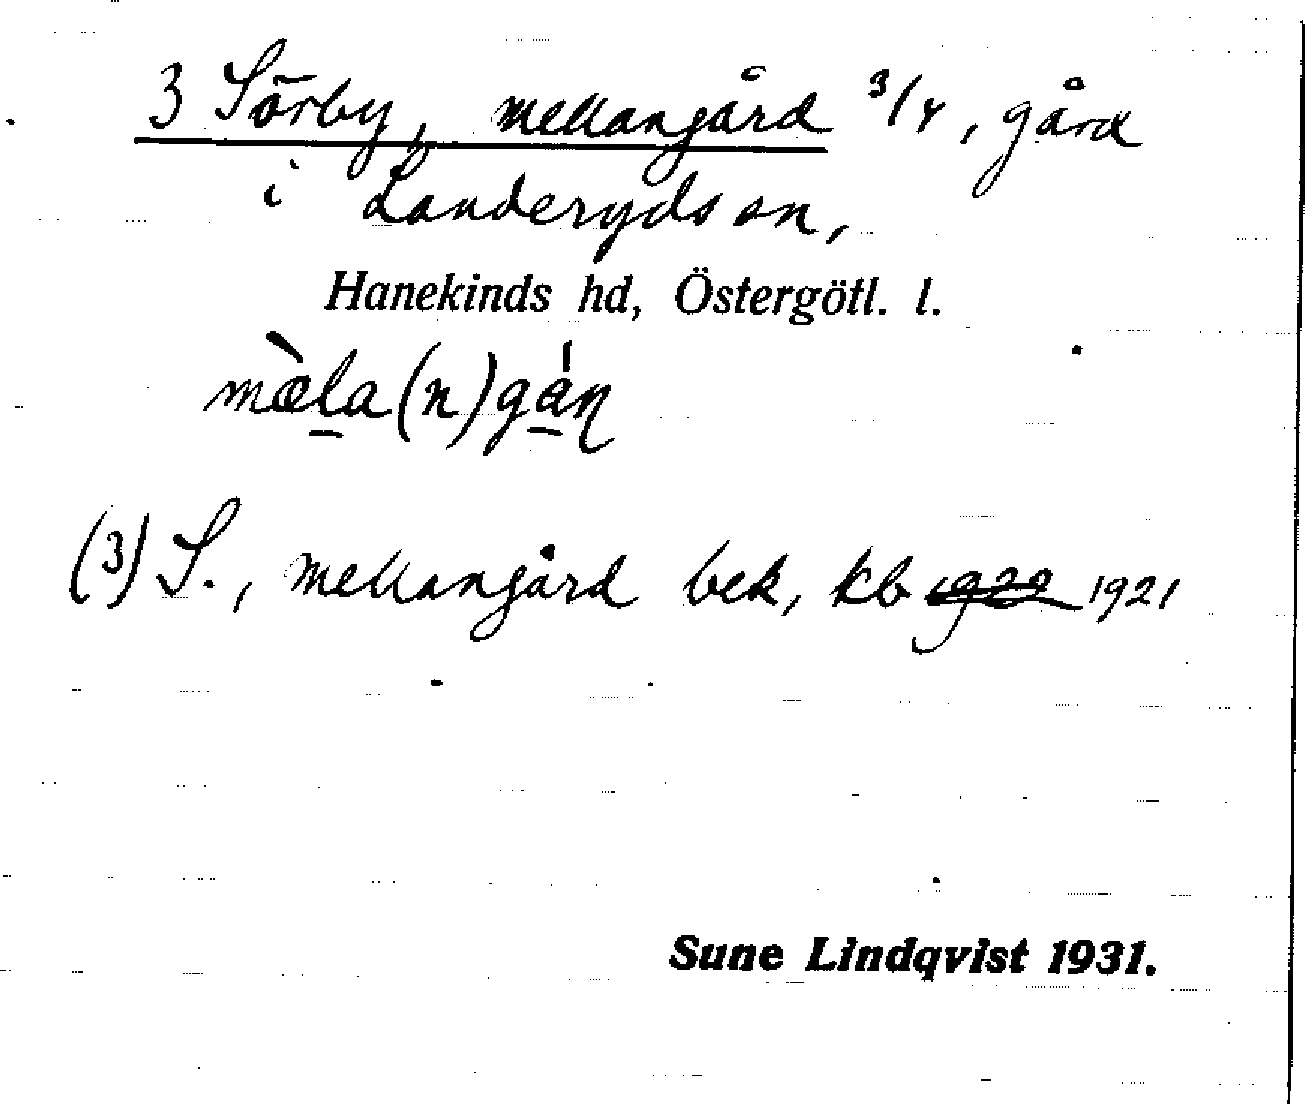 3 Sörby, mellangård 3/4, gård
i Landeryds sn,
Hanekinds hd, Östergötl. l.
mæ̀la(n)gán
(3) S., mellangård bek, kb 1920 1921
Sune Lindqvist 1931.